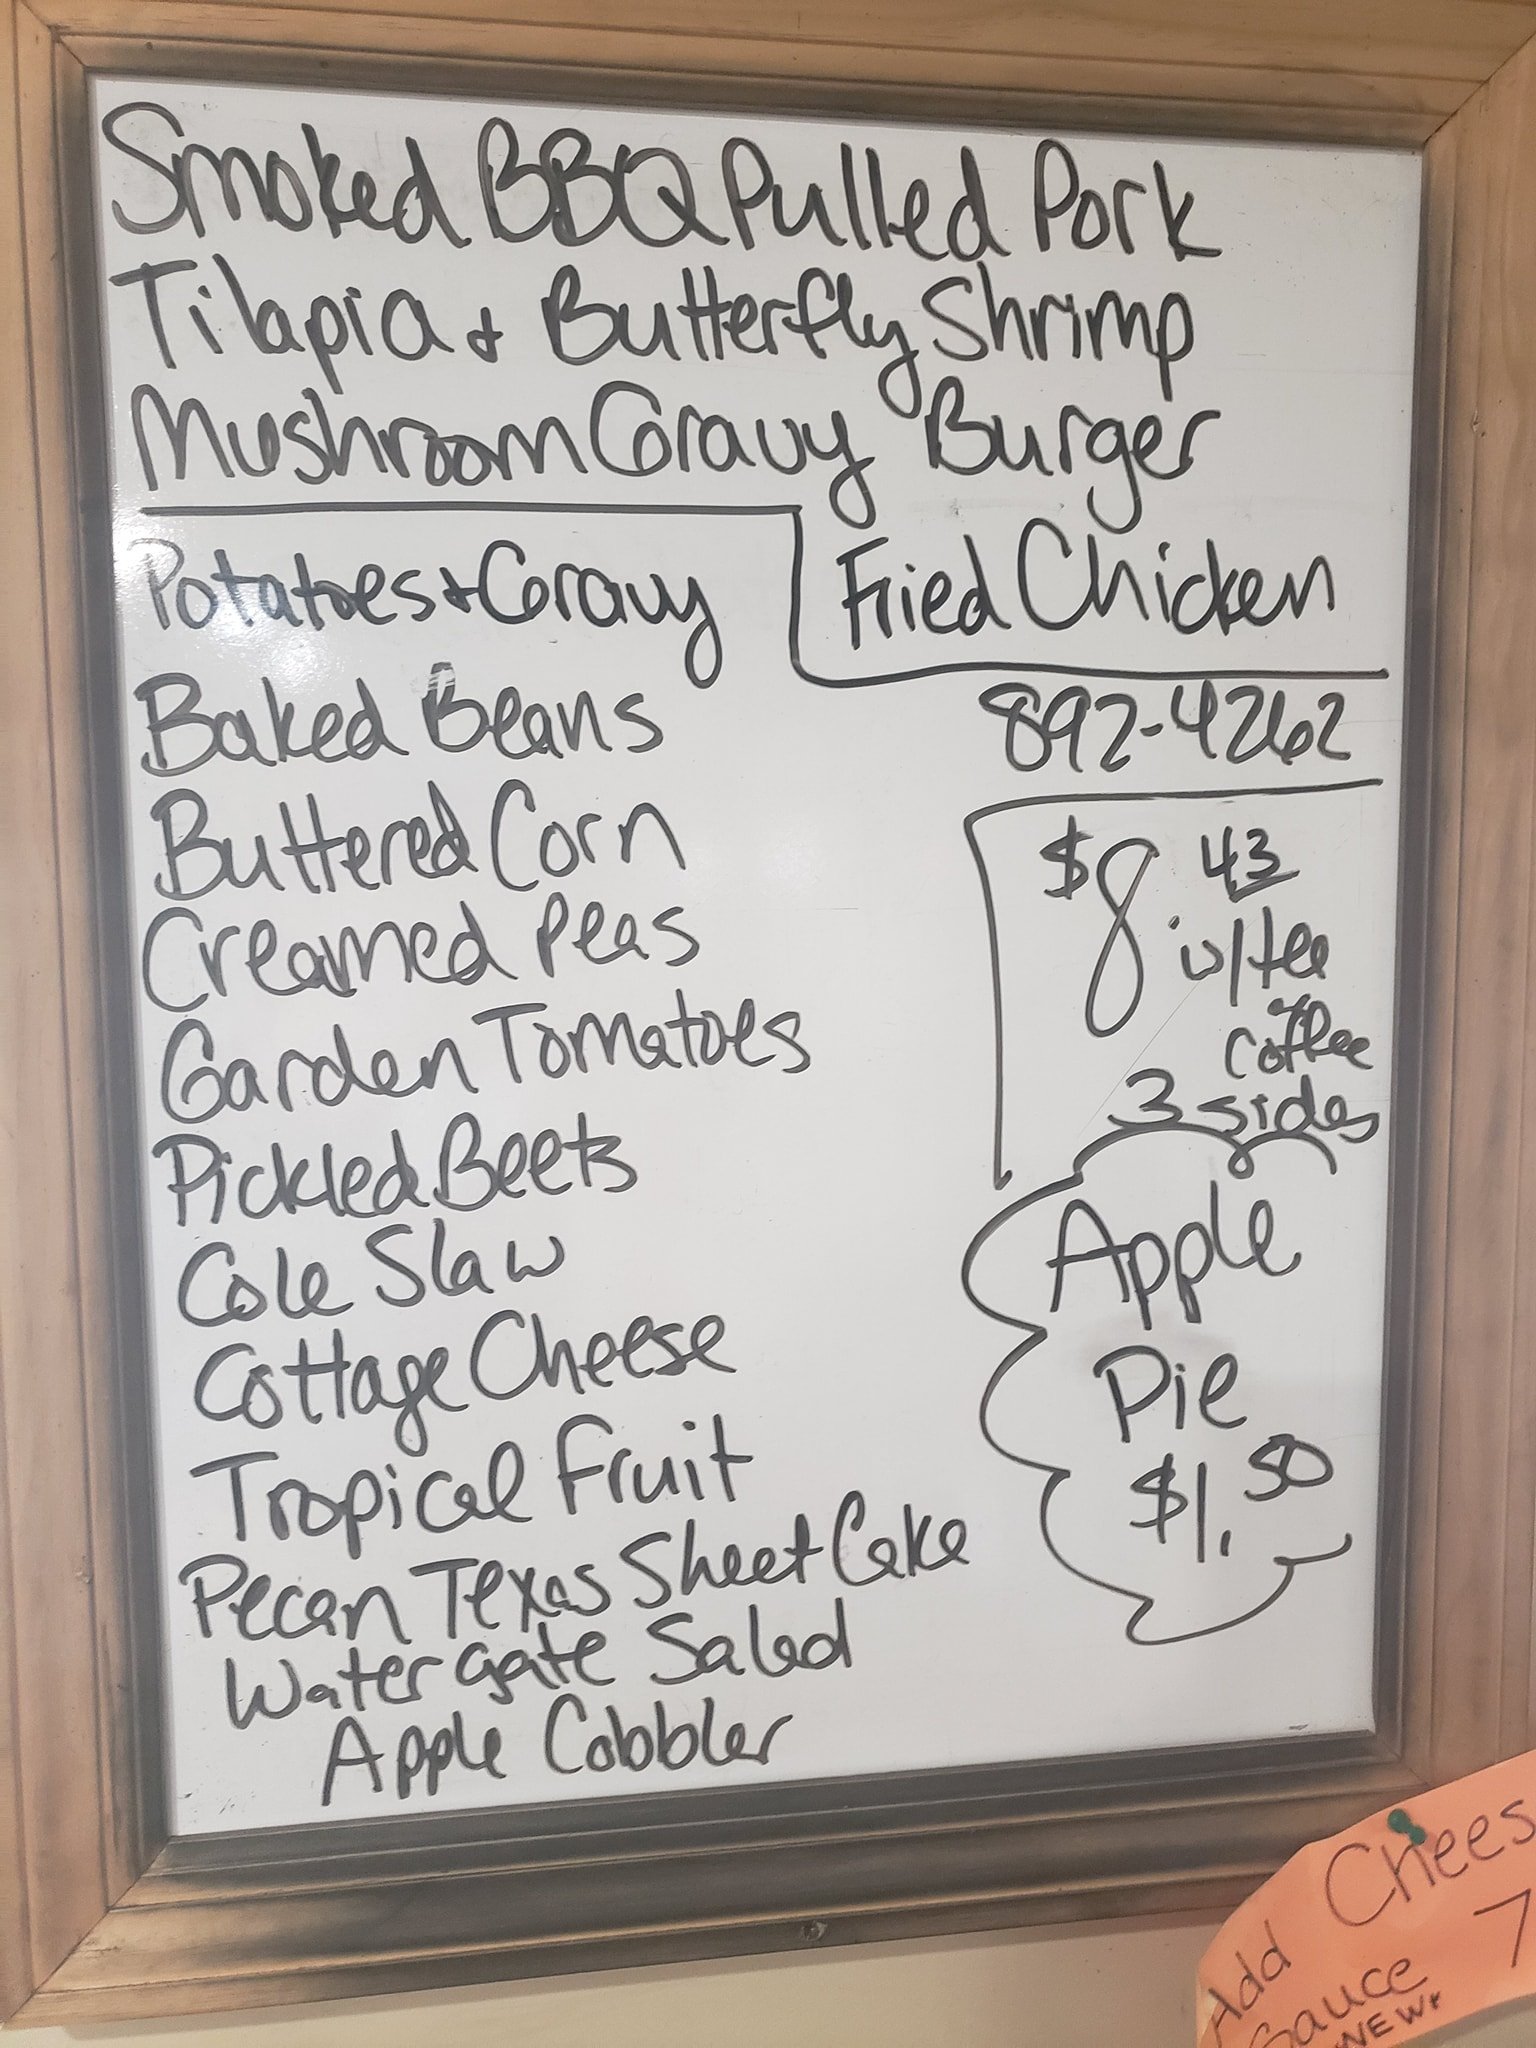 Smoked BBQ Pulled Pork
Tilapia & Butterfly Shrimp
Mushroom Gravy Burger
Fried Chicken
Potatoes & Gravy
Baked Beans
Buttered Corn
Creamed Peas
Garden Tomatoes
Pickled Beets
Cole Slaw
Cottage Cheese
Tropical Fruit
Pecan Texas Sheet Cake
Watergate Salad
Apple Cobbler
892-4262
$8 43
w/tea
or
coffee
3 sides
Apple
Pie
$1.50
Add Chees
Sauce 7
NEW